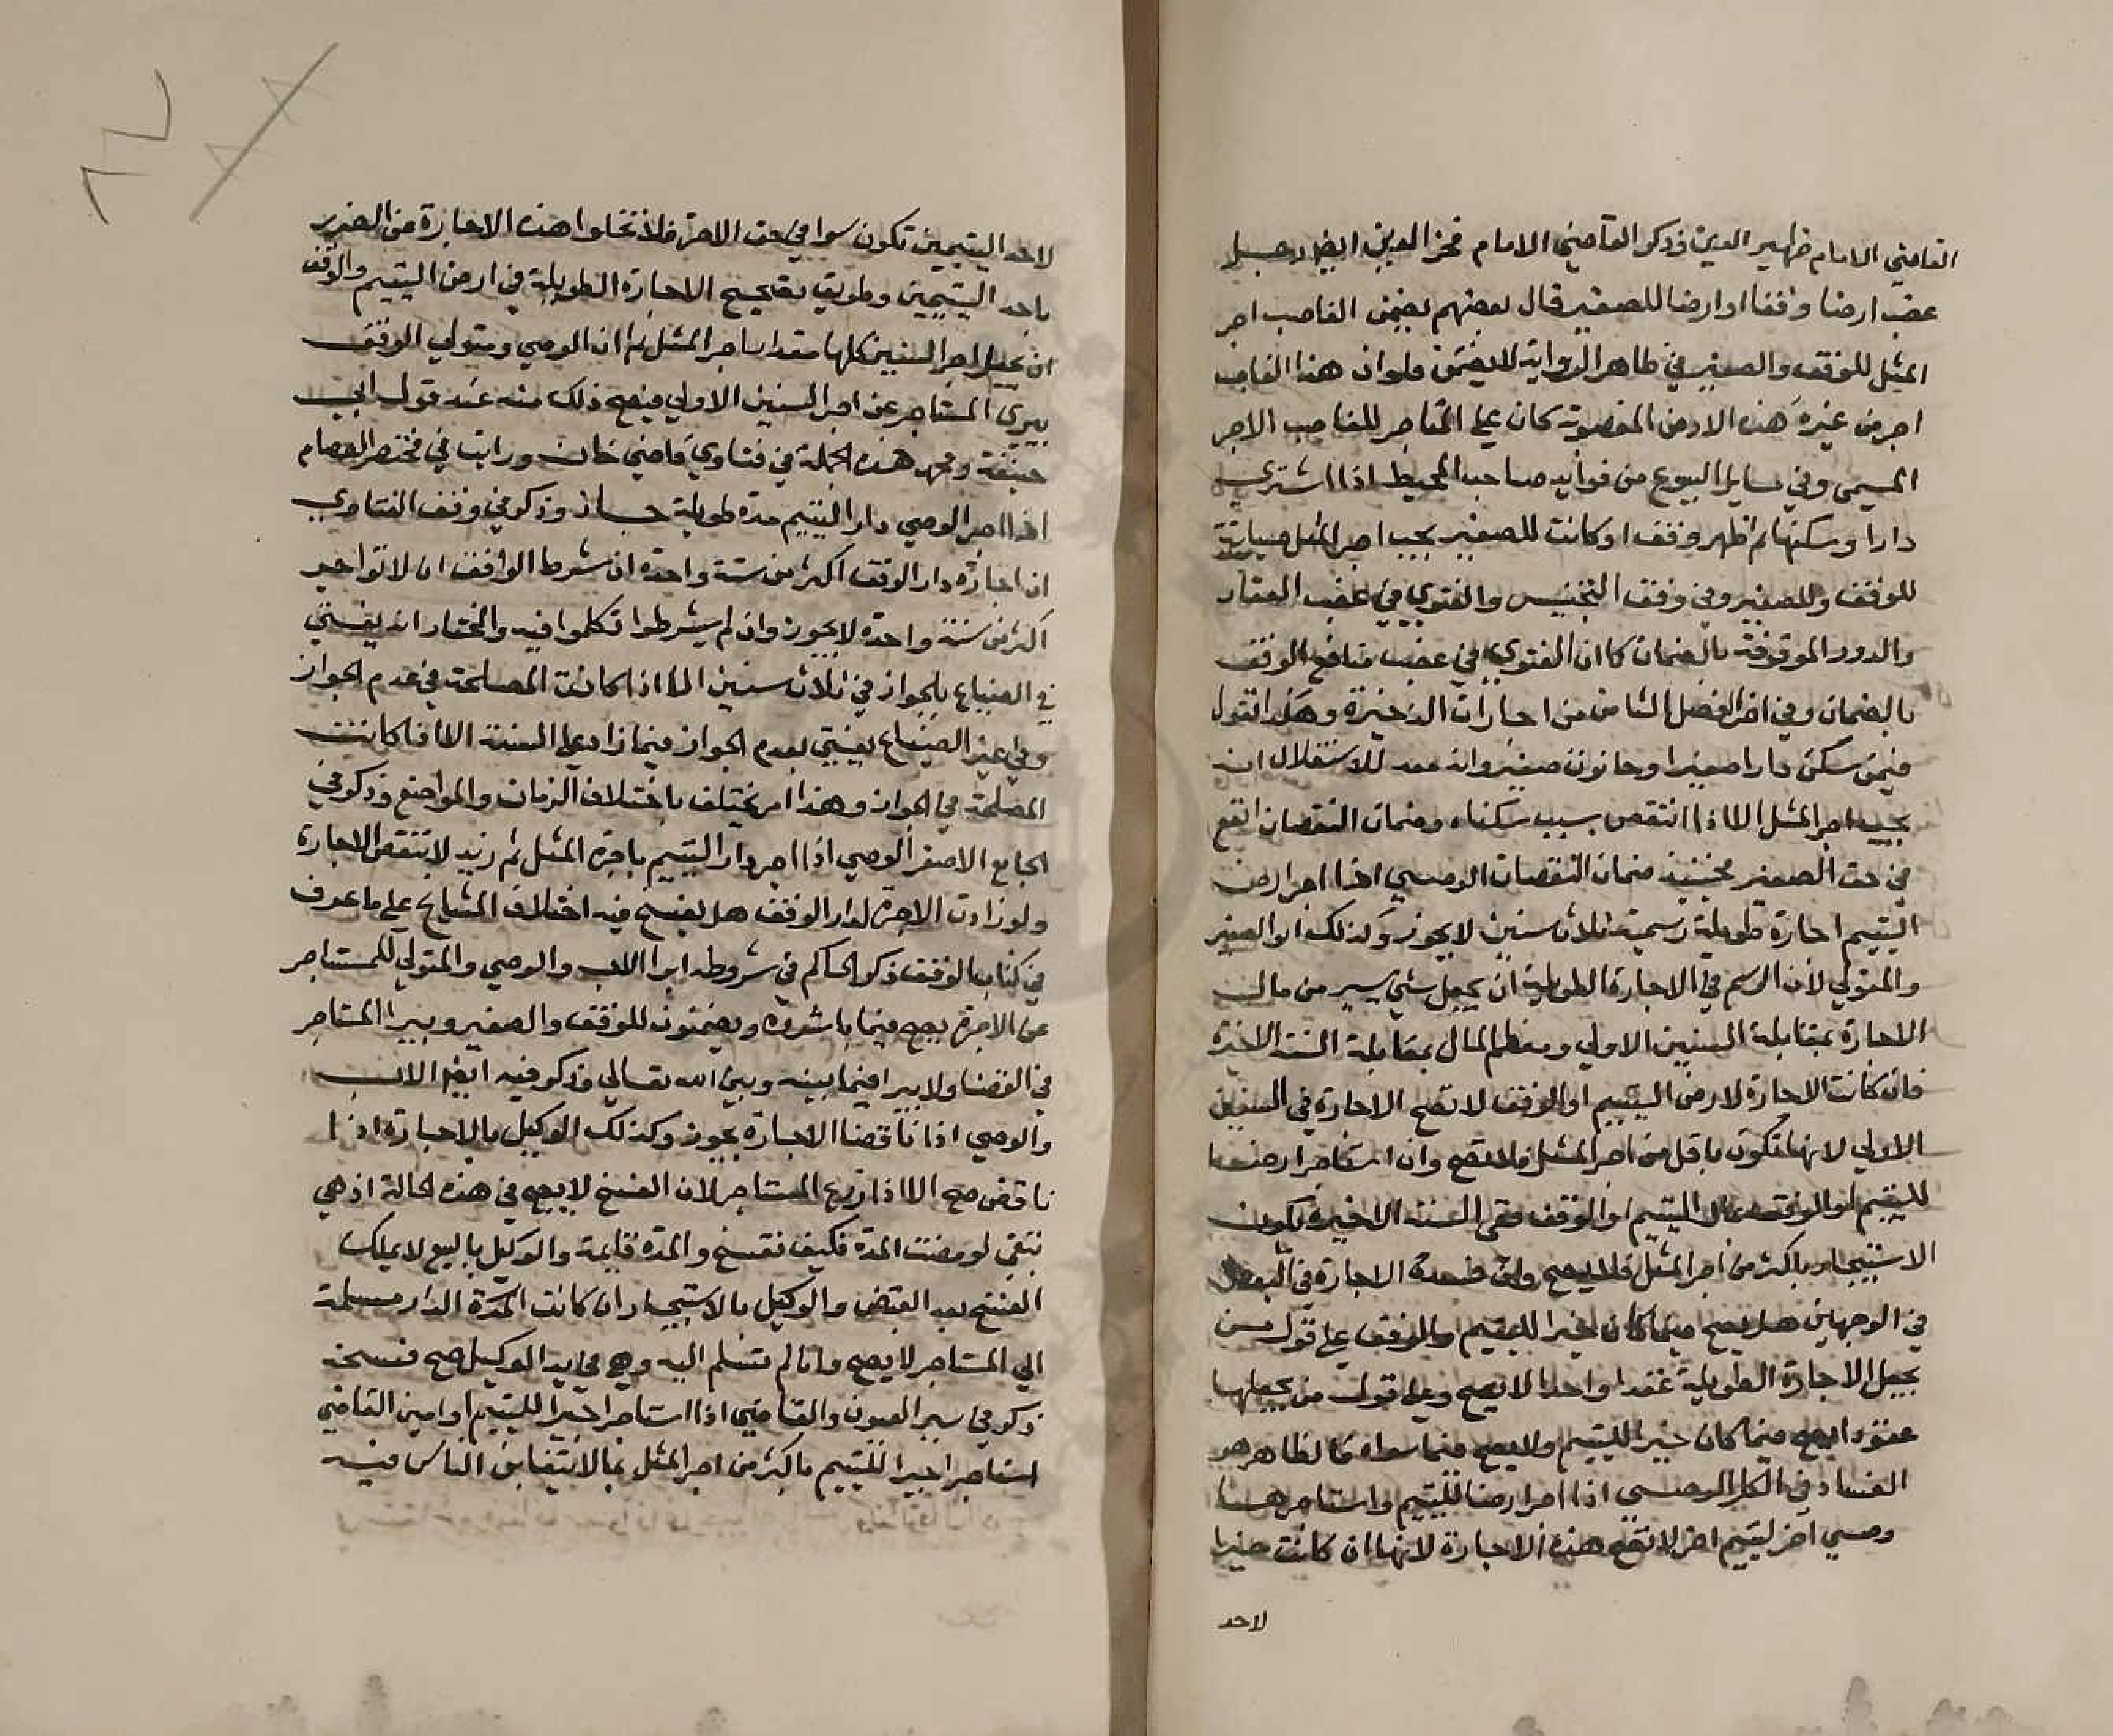 القاضي الامام ظهير الدين وذكر القاضي الامام فخر الدين ايضا رجل
غصب ارضا وقفا او ارضا للصغير قال بعضهم يضمن الغاصب اجر
المثل للوقف والصغير في ظاهر الرواية لا يضمن ولو ان هذا الغاصب
اجر من غيره هذه الارض المغصوبة كان علي المتاجر للغاصب الاجر
المسمى وفي مسايل البيوع من فوايد صاحب المحيط اذا اشترى
دارا وسكنها ثم ظهر وقف او كانت للصغير يجب اجر المثل صيانة
للوقف وللصغير وفي وقف التجنيس والفتوي في غصب العقار
والدور الموقوفة بالضمان كما ان الفتوي في غصب منافع الوقف
بالضمان وفي اخر الفصل الثامن من اجارات الذخيرة وهكذا نقول
فيمن سكن دار صغير او حانوت صغير وانه معد للاستغلال انه
يجب اجر المثل الا اذا انتقص بسبب سكناه وضمان النقصان انفع
في حق الصغير فحينئذ ضمان النقصان الوصي اذا اجر ارض
اليتيم اجارة طويلة رسمية ثلاث سنين لا يجوز وكذلك ابو الصغير
والمتولي لان الرسم في الاجارة الطويلة ان يجعل شي يسير من مال
الاجارة بمقابلة السنين الاولي ومعظم المال بمقابلة السنة الاخيرة
فان كانت الاجارة لارض اليتيم او الوقف لا تصح الاجارة في السنين
الاولي لانها تكون باقل من اجر المثل فلا تصح وان استاجر ارضا
لليتيم او الوقف بمال اليتيم او الوقف ففي السنة الاخيرة تكون
الاستيجار باكثر من اجر المثل فلا يصح واذا فسدة الاجارة في البعض
في الوجهين هل تصح فيما كان خيرا لليتيم والوقف علي قول من
يجعل الاجارة الطويلة عقدا واحدا لا يصح وعلي قول من يجعلها
عقودا يصح فيما كان خيرا لليتيم ولا يصح فيما سواه فالظاهر هو
الفساد في الكل الوصي اذا اجر ارضا لليتيم واستاجرها
وصي اخر ليتيم اخر لا تصح هذه الاجارة لانها ان كانت خيرا
لاحد
لاحد اليتيمين تكون سوا في حق الاخر فلا تخلوا هذه الاجارة من الضرر
باحد اليتيمين وطريق تصحيح الاجارة الطويلة في ارض اليتيم والوقف
ان يجعل اجر السنين كلها مقدار اجر المثل ثم ان الوصي ومتولي الوقف
يبري المستاجر عن اجر السنين الاولي فيصح ذلك منه عند قول ابي
حنيفة و هذه الجملة في فتاوي قاضي خان ورايت في مختصر العصام
اذا اجر الوصي دار اليتيم مدة طويلة جاز وذكر في وقف الفتاوي
ان اجارة دار الوقف اكثر من سنة واحدة ان شرط الواقف ان لا تواجر
اكثر من سنة واحدة لا يجوز وان لم يشرطوا تكلموا فيه والمختار انه يفتي
في الضياع بالجواز في ثلاث سنين الا اذا كانت المصلحة في عدم الجواز
وفي غير الضياع يفتي بعدم الجواز فيما زاد علي السنة الا اذا كانت
المصلحة في الجواز وهذا امر يختلف باختلاف الزمان والمواضع وذكر في
الجامع الاصغر الوصي اذا اجر دار اليتيم باجرة المثل ثم زيد لا تنتقض الاجارة
ولو زادت الاجرة لدار الوقف هل يفسخ فيه اختلاف المشايخ علي ما عرف
في كتاب الوقف ذكر الحاكم في شروطه ابرا الاب والوصي والمتولي للمستاجر
عن الاجرة يصح فيما باشروه ويضمنون للوقف والصغير ويبرا المستاجر
في القضا ولا يبرا فيما بينه وبين الله تعالي وذكر فيه ايضا الاب
والوصي اذا ناقضا الاجارة يجوز وكذلك الوكيل بالاجارة اذا
ناقض صح الا اذا زرع المستاجر لان الفسخ لا يصح في هذه الحالة اذ هي
تبقي لو مضت المدة فكيف تفسخ والمدة قايمة والوكيل بالبيع لا يملك
الفسخ بعد القبض والوكيل بالاستيجار ان كانت المدة الدار مسلمة
الي المستاجر لا يصح وان لم تسلم اليه وهي في يد الوكيل صح فسخه
ذكر في سير العيون والقاضي اذا استاجر اجيرا لليتيم او امين القاضي
استاجر اجيرا لليتيم باكثر من اجر المثل بما لا يتغابن الناس فيه